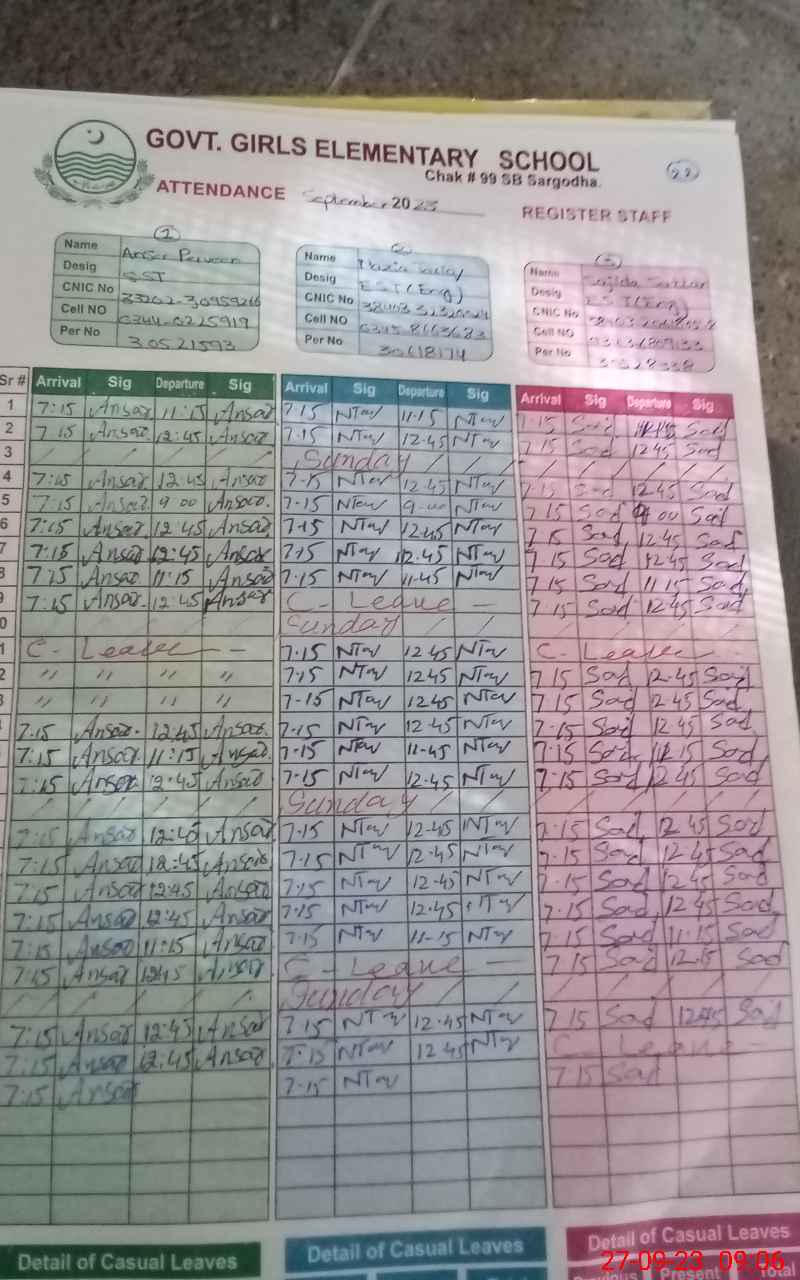 GOVT. GIRLS ELEMENTARY SCHOOL
22
Chak # 99 SB Sargodha.
ATTENDANCE September 2023 REGISTER STAFF
1 2 3
Name Ansar Parveen Name Name Sajida
Desig SST Desig EST (Eng) Desig EST (Eng)
CNIC No CNIC No CNIC No
Cell NO 0344-0225919 Cell NO 0345 8663683 Cell NO
Per No 30521593 Per No 30618174 Per No
Sr # Arrival Sig Departure Sig Arrival Sig Departure Sig Arrival Sig Departure Sig
1 7:15 Ansar 11:15 Ansar 7.15 NTav 11.15 NTav 7.15 Sad Sad
2 7 15 Ansar 12:45 Ansar 7.15 NTav 12.45 NTav 7 15 Sad 12 45 Sad
3 / / / / Sunday / / / / / /
4 7:15 Ansar 12 45 Ansar 7.15 NTav 12.45 NTav 7 15 Sad 12 45 Sad
5 7:15 Ansar 9 00 Ansar 7.15 NTav 9.00 NTav 7 15 Sad 9 00 Sad
6 7:15 Ansar 12:45 Ansar 7.15 NTav 12.45 NTav 7 15 Sad 12 45 Sad
7 7:15 Ansar 12:45 Ansar 7.15 NTav 12.45 NTav 7 15 Sad 12 45 Sad
8 7:15 Ansar 11:15 Ansar 7.15 NTav 11.45 NTav 7 15 Sad 11 15 Sad
9 7:15 Ansar 12:45 Ansar C - Leave - 7 15 Sad 12 45 Sad
0 Sunday / /
1 C - Leave - 7.15 NTav 12 45 NTav C. Leave
2 " " " " 7.15 NTav 12 45 NTav 7 15 Sad 12.45 Sad
3 " " " " 7-15 NTav 12 45 NTav 7.15 Sad 12 45 Sad
7:15 Ansar 12:45 Ansar 7.15 NTav 12.45 NTav 7.15 Sad 12 45 Sad
7:15 Ansar 11:15 Ansar 7.15 NTav 11-45 NTav 7:15 Sad 11 15 Sad
7:15 Ansar 12:45 Ansar 7.15 NTav 12.45 NTav 7:15 Sad 12 45 Sad
/ / / / Sunday / / / / / /
7:15 Ansar 12:45 Ansar 7.15 NTav 12-45 NTav 7.15 Sad 12 45 Sad
7:15 Ansar 12:45 Ansar 7.15 NTav 12.45 NTav 7.15 Sad 12.45 Sad
7:15 Ansar 12:45 Ansar 7.15 NTav 12.45 NTav 7.15 Sad 12 45 Sad
7:15 Ansar 12:45 Ansar 7.15 NTav 12.45 NTav 7.15 Sad 12 45 Sad
7:15 Ansar 11:15 Ansar 7.15 NTav 11-15 NTav 7.15 Sad 11.15 Sad
7:15 Ansar 1245 Ansar C - Leave - 7 15 Sad 12.15 Sad
/ / / / Sunday / /
7:15 Ansar 12:45 Ansar 7.15 NTav 12.45 NTav 7 15 Sad 12 45 Sad
7:15 Ansar 12:45 Ansar 7.15 NTav 12 45 NTav C. Leave -
7:15 Ansar 7.15 NTav 7 15 Sad
Detail of Casual Leaves Detail of Casual Leaves Detail of Casual Leaves
Present Total
27-09-23 09:06